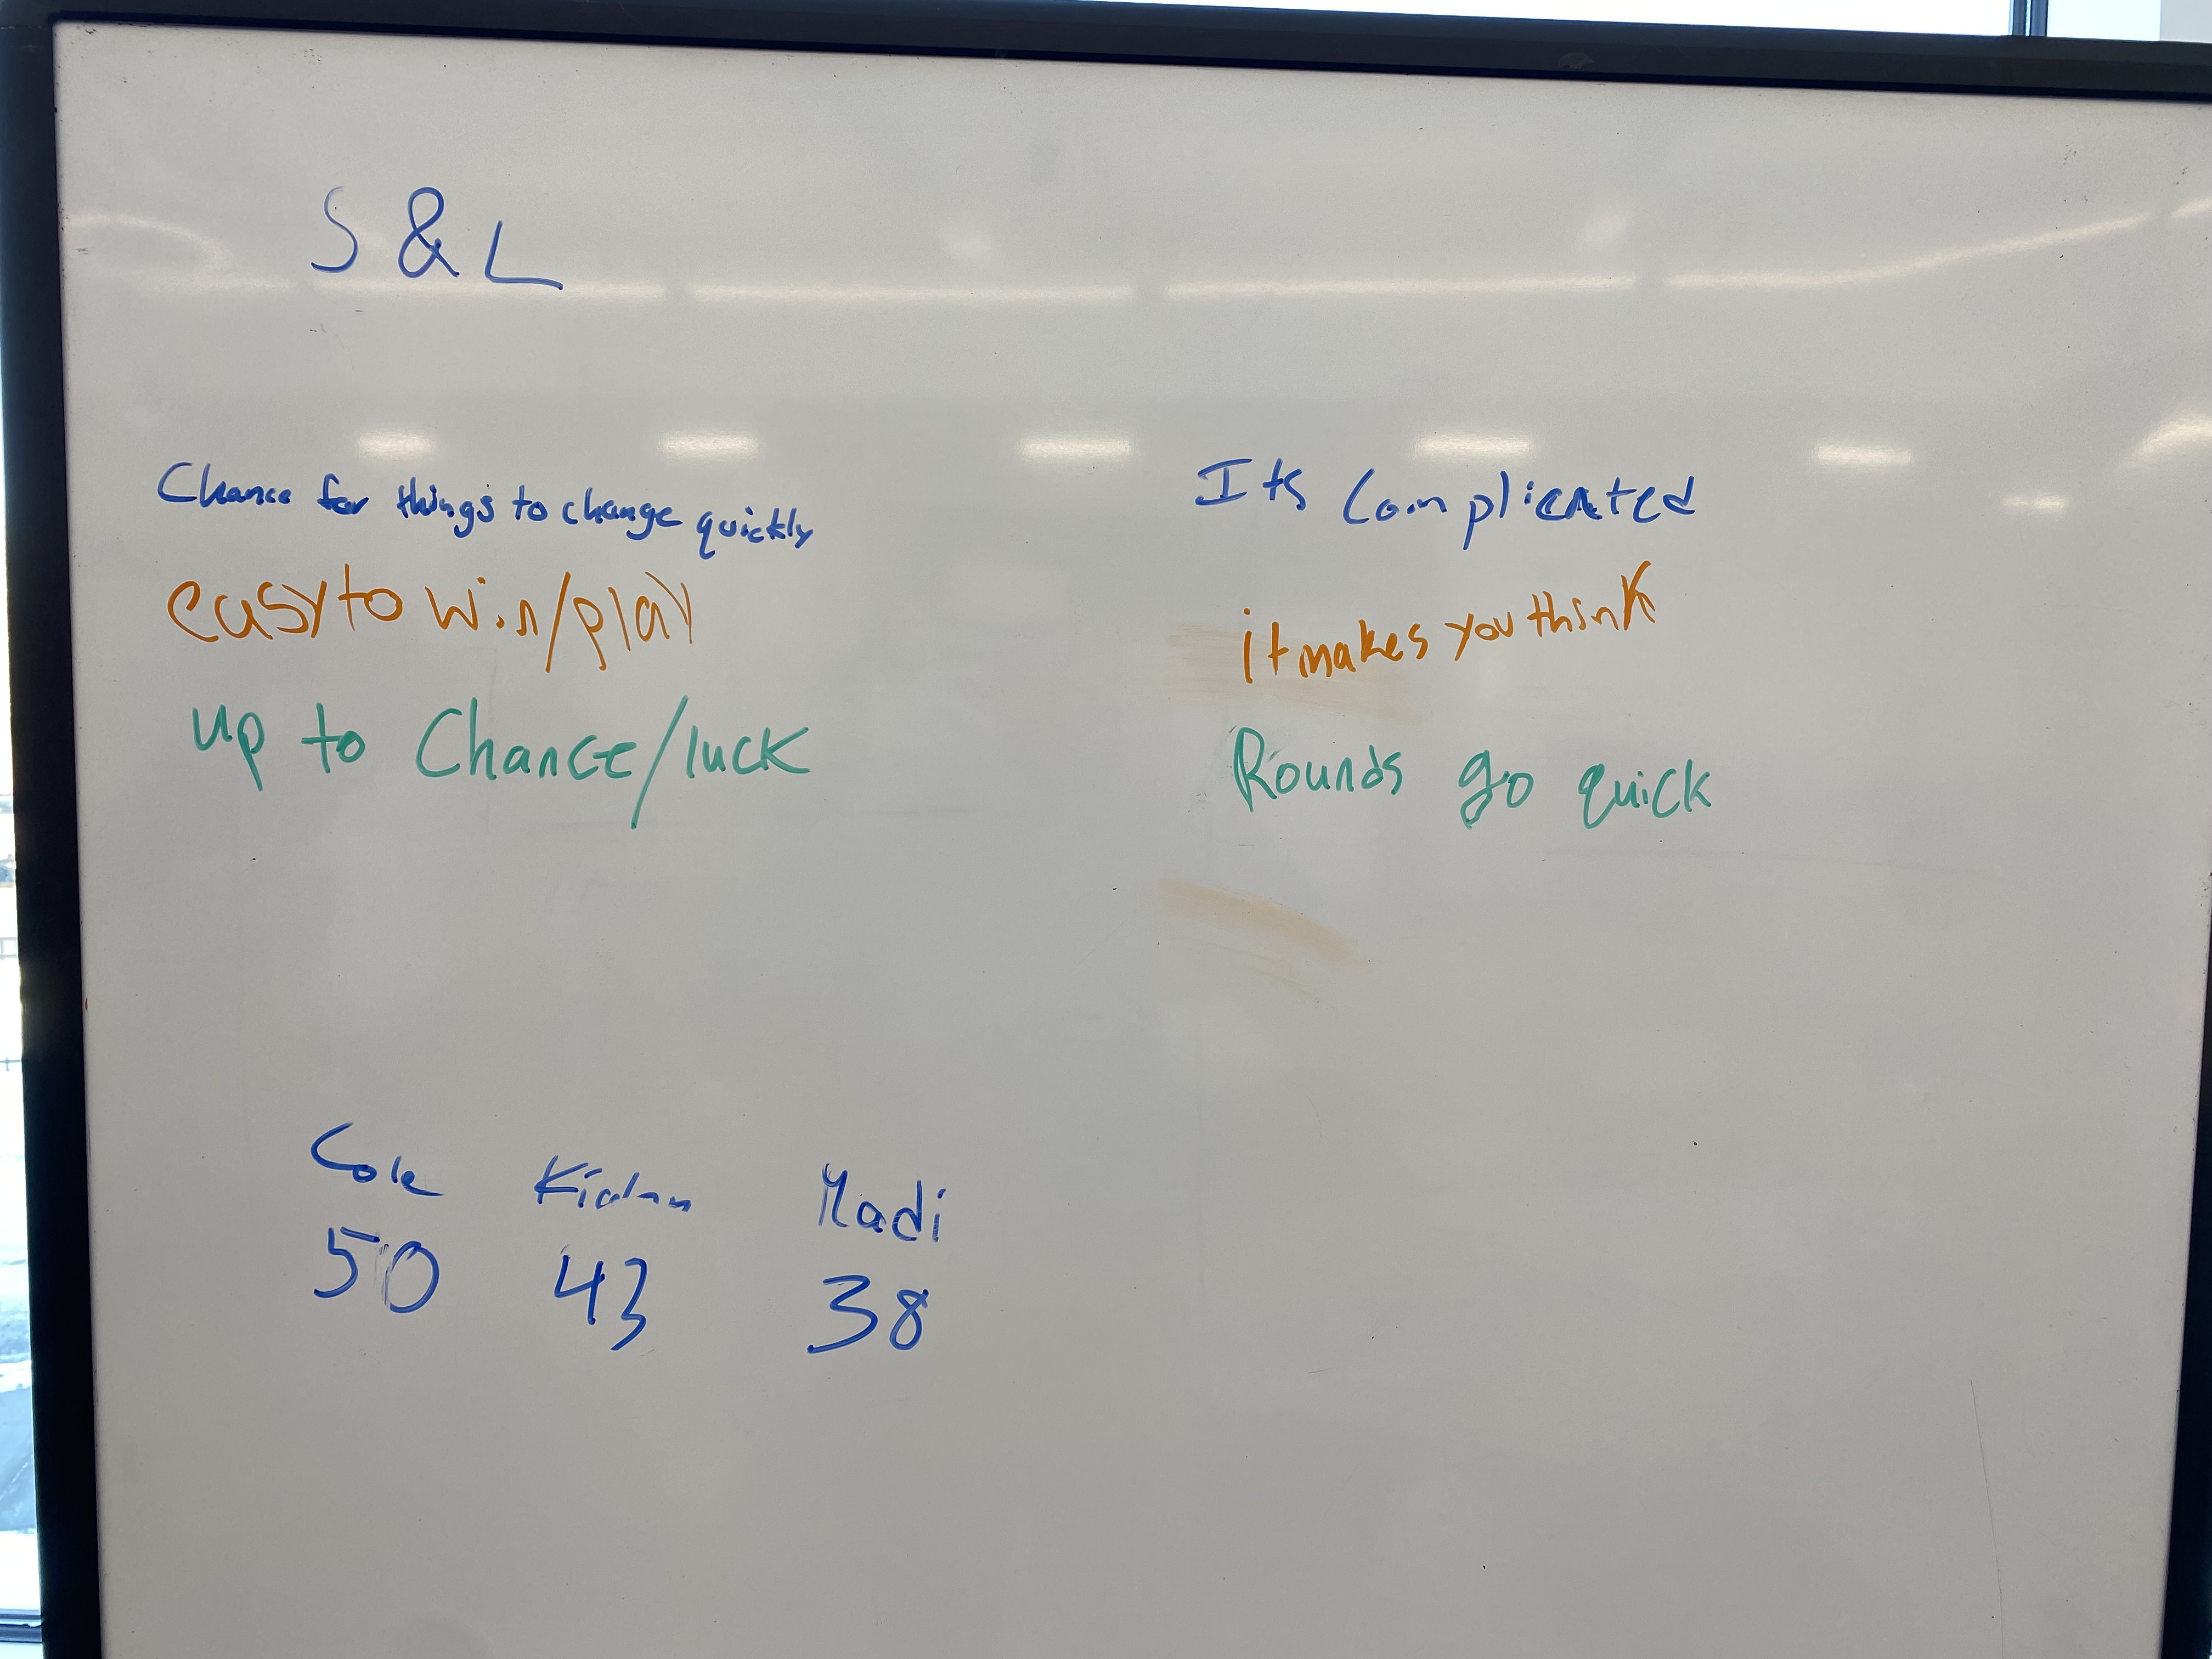 S & L
Chance for things to change quickly
easy to win/play
up to Chance/luck
Its Complicated
it makes you think
Rounds go quick
Cole Kidan Madi
50 43 38